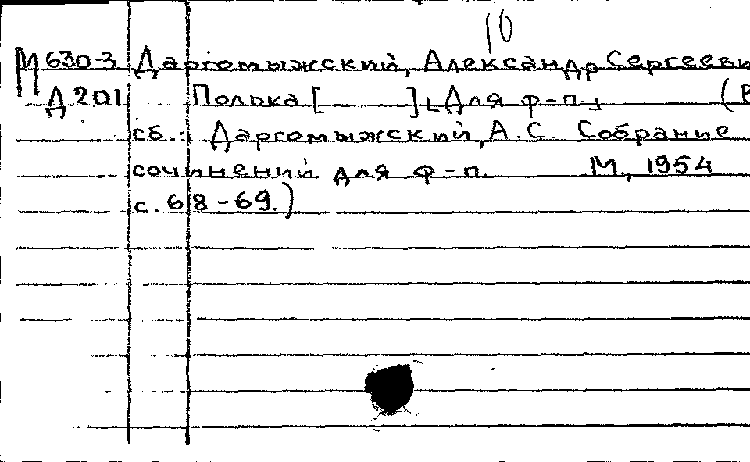 10
М 630-3 Даргомыжский, Александр Сергеевич
Д 201 Полька [ ] [Для ф-п.] (В
сб.: Даргомыжский, А.С. Собрание
сочинений для ф-п. М., 1954
с. 68-69.)